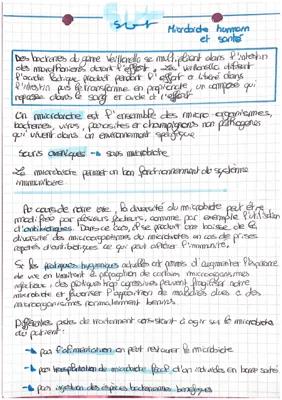 SVT
Microbiote humain
et santé
Des bactéries du genre Veillonella se multiplient dans l'intestin
des marathoniens durant l'effort, les Veillonella utilisent
l'acide lactique produit pendant l'effort et libéré dans
l'intestin puis le transforme en propionate, un composé qui
repasse dans le sang et aide à l'effort
Un microbiote est l'ensemble des micro-organismes,
bactéries, virus, parasites et champignons non pathogènes
qui vivent dans un environnement spécifique
Souris axéniques → sans microbiote
Le microbiote permet un bon fonctionnement du système
immunitaire
Au cours de notre vie, la diversité du microbiote peut être
modifiée par plusieurs facteurs, comme par exemple l'utilisation
d'antibiotiques. Dans ce cas, il se produit une baisse de la
diversité des microorganismes du microbiote en cas de prises
répétées d'antibiotiques ce qui peut affecter l'immunité,
Si les pratiques hygiéniques actuelles ont permis d'augmenter l'espérance
de vie en limitant la propagation de certains microorganismes
infectieux, des pratiques trop agressives peuvent fragiliser notre
microbiote et favoriser l'apparition de maladies dues à des
microorganismes normalement bénins.
Différentes pistes de traitement consistant à agir sur le microbiote
du patient:
→ par l'alimentation on peut restaurer le microbiote
→ par transplantation de microbiote fécal d'un individu en bonne santé
→ par ingestion des espèces bactériennes bénéfiques